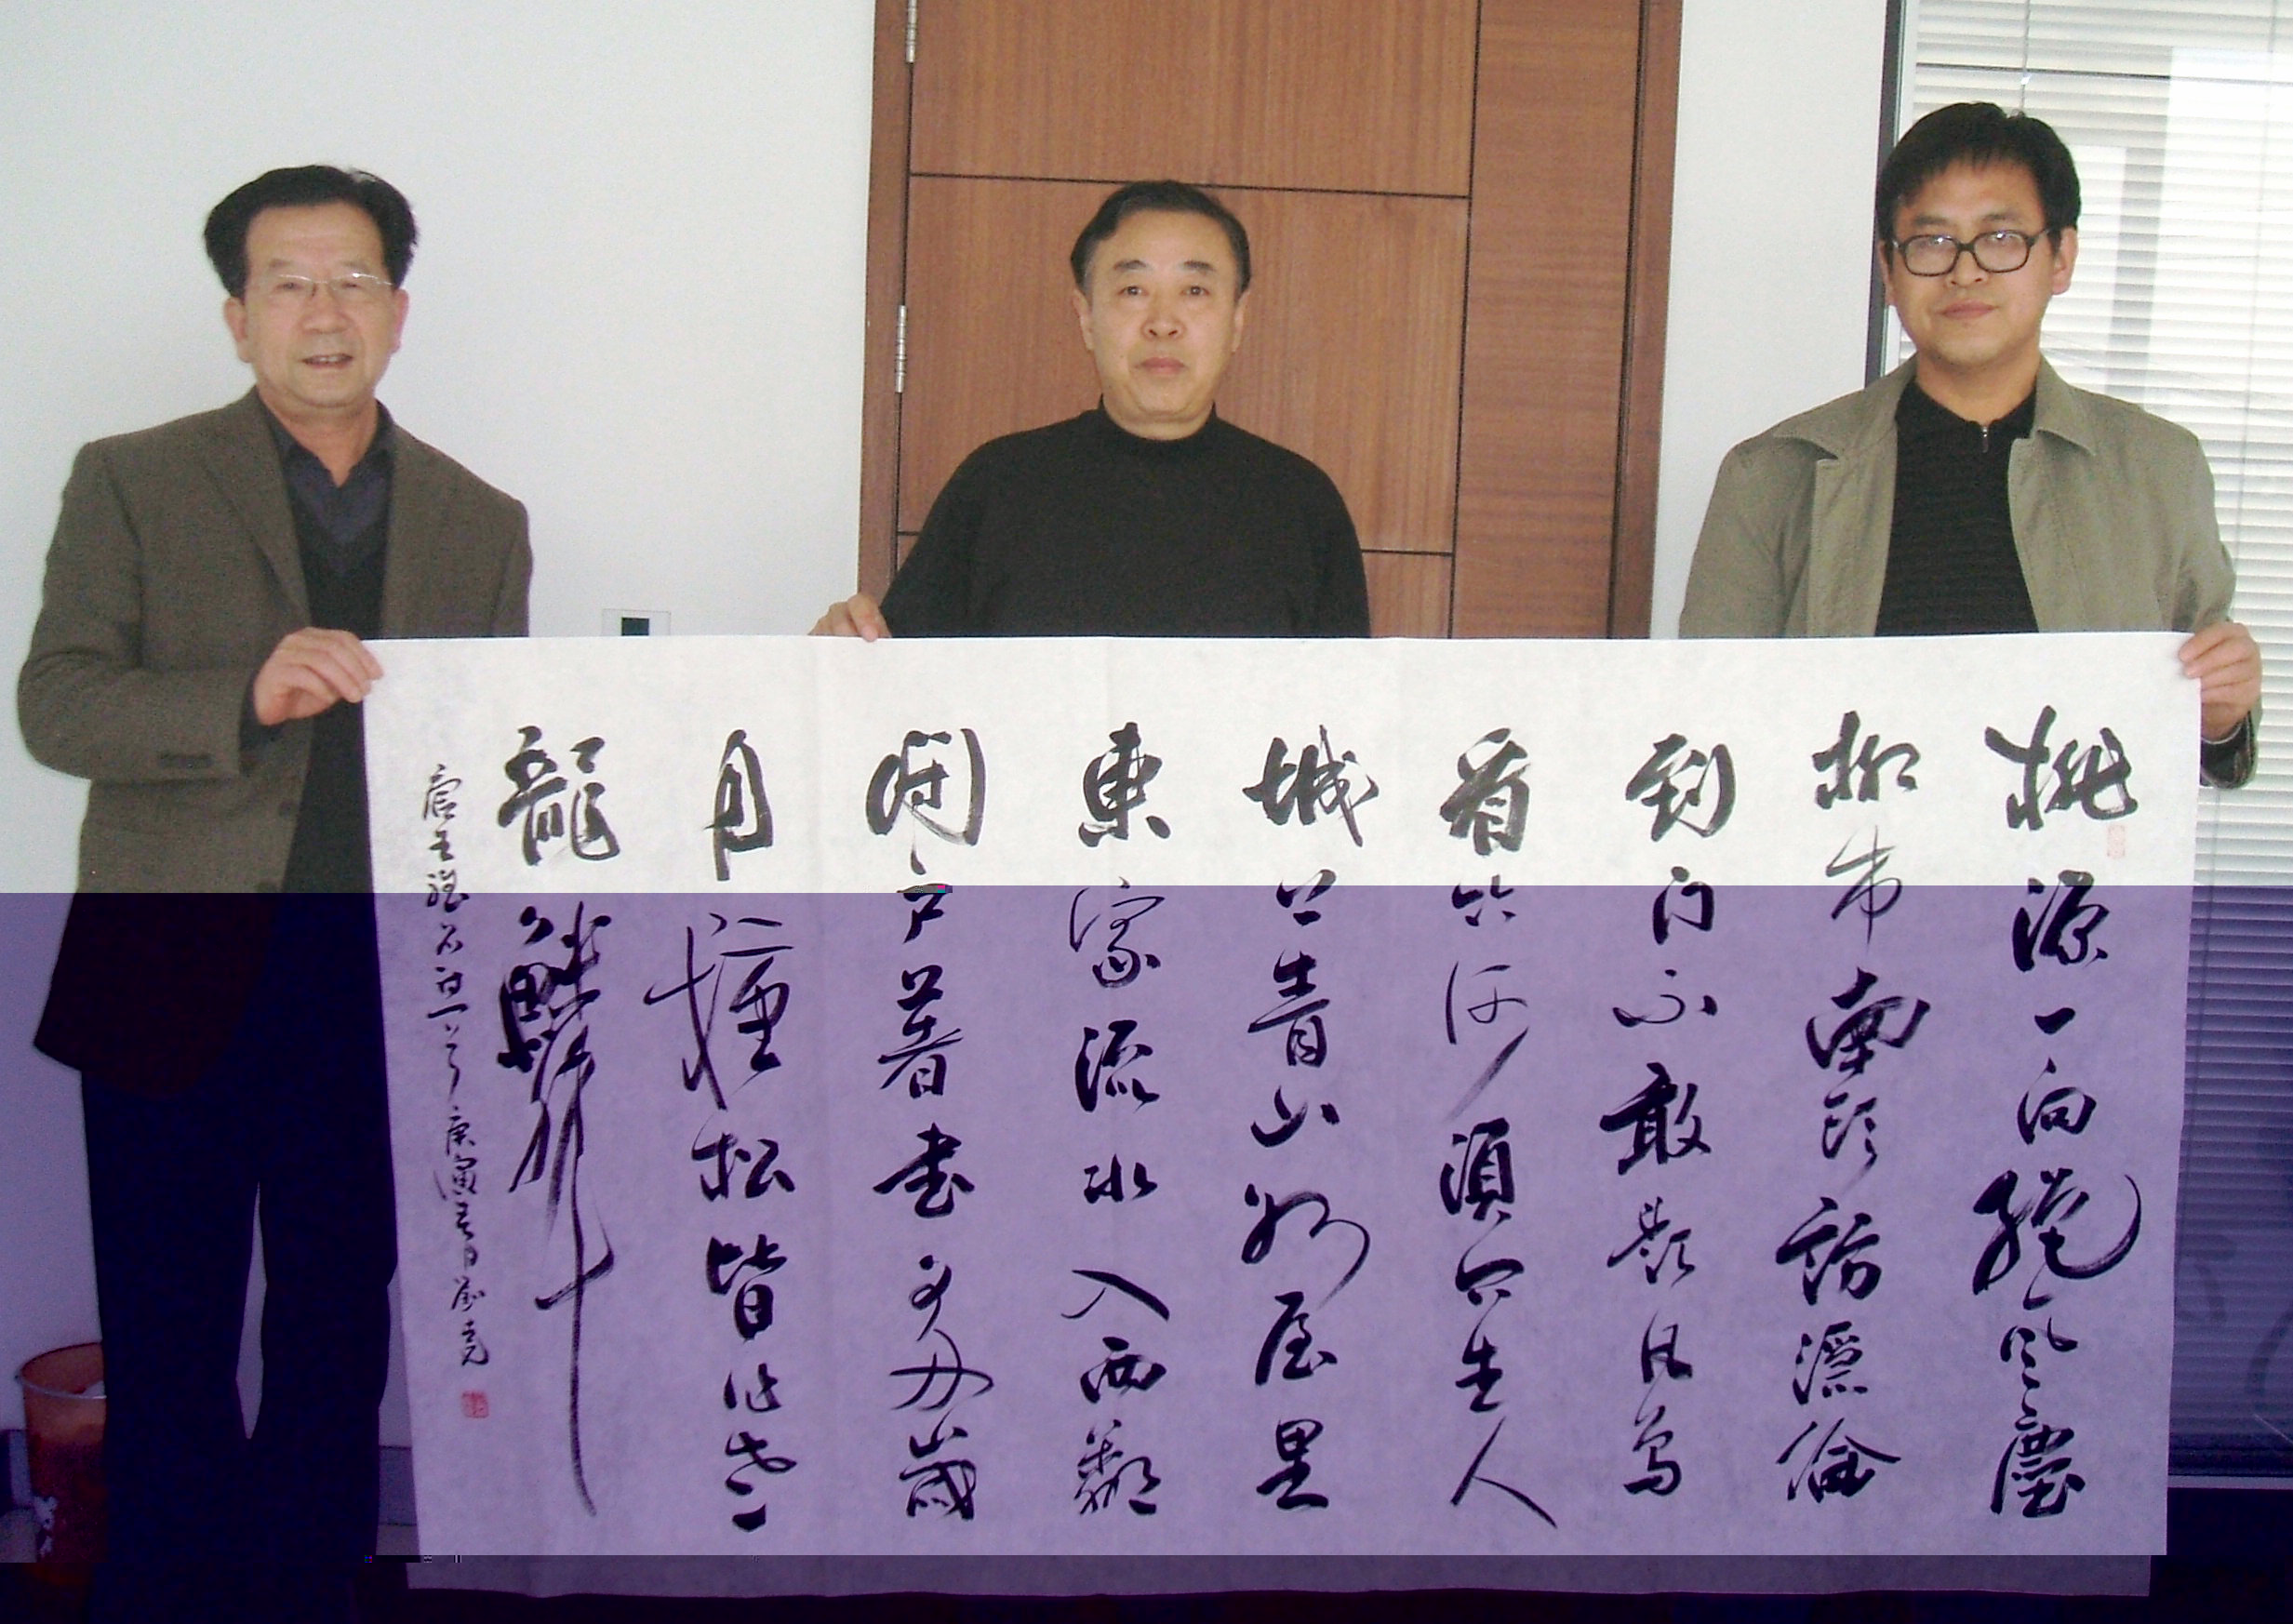 桃源一向絕風塵
柳市南頭訪隱淪
到门不敢题凡鸟
看竹何須问主人
城上青山如屋里
東家流水入西鄰
闭户著书多歲
月種松皆作老
龍鱗
唐王維名诗一首 庚寅